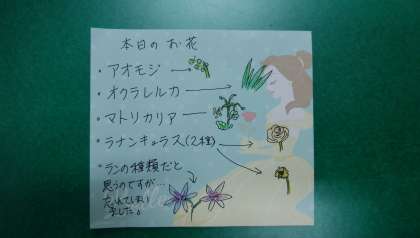 本日のお花
・アオモジ
・オクラレルカ
・マトリカリア
・ラナンキュラス(2種)
・ランの種類だと
思うのですが…
忘れてしまい
ました。